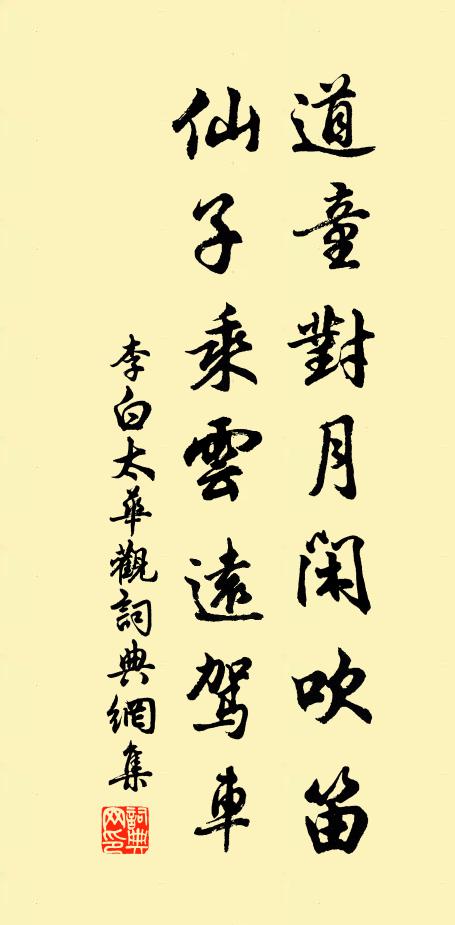 道童對月閑吹笛
仙子乘雲遠駕車
李白太華觀詞典網集
詞典網印